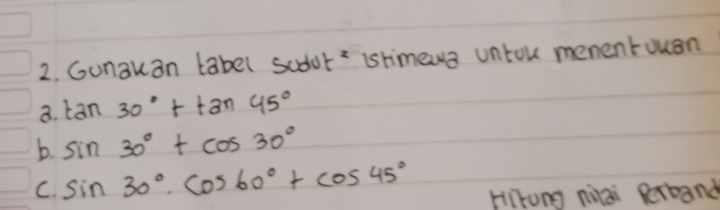 2. Gunakan tabel sudut² istimewa untuk menentukan
a. tan 30° + tan 45°
b. sin 30° + cos 30°
c. sin 30°. cos 60° + cos 45°
Hitung nilai Perband